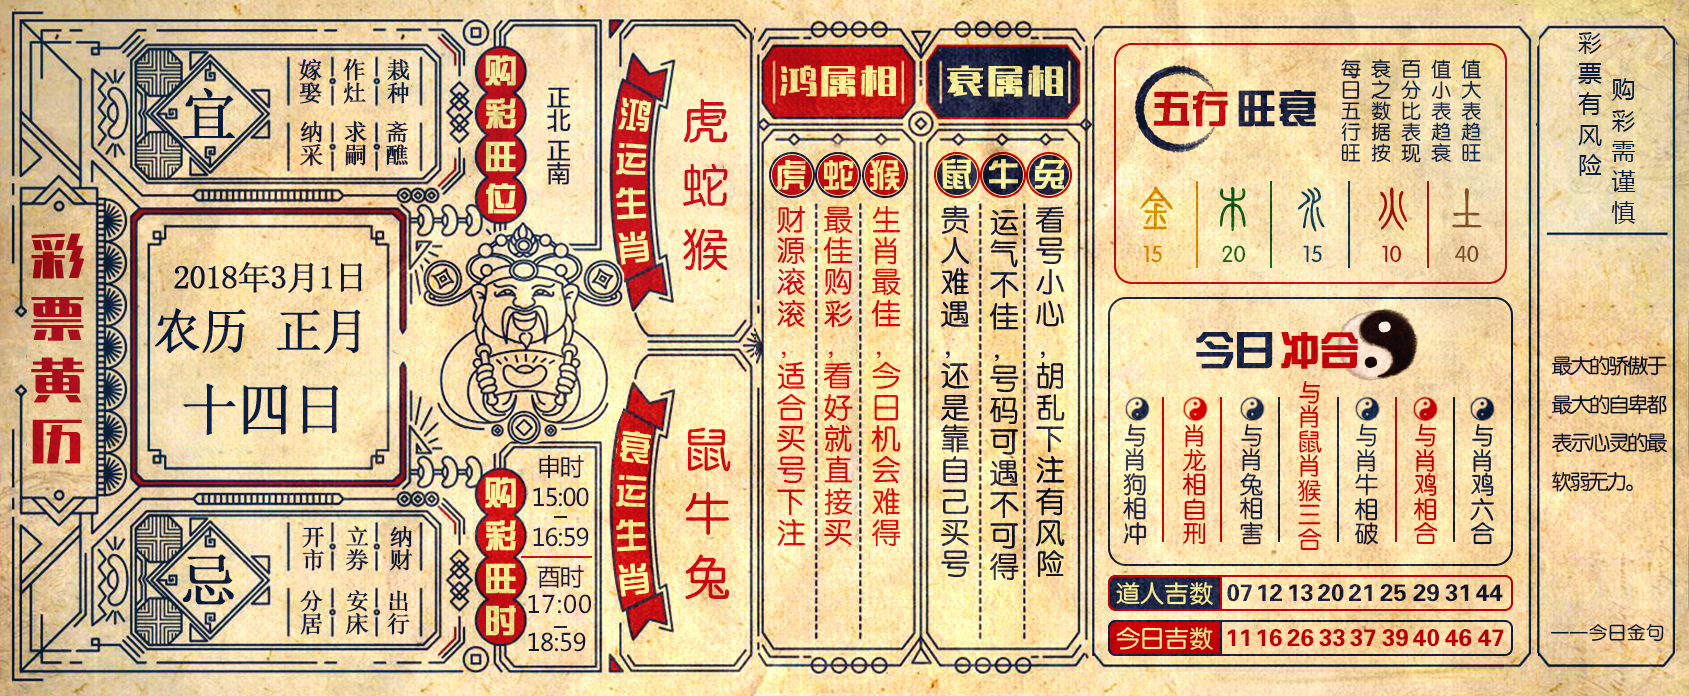 彩票黄历
宜
嫁娶
作灶
栽种
纳采
求嗣
斋醮
2018年3月1日
农历 正月
十四日
忌
开市
立券
纳财
分居
安床
出行
购彩旺位
正北 正南
购彩旺时
申时
15:00
–
16:59
酉时
17:00
–
18:59
鸿运生肖
虎蛇猴
衰运生肖
鼠牛兔
鸿属相
虎
财源滚滚,适合买号下注
蛇
最佳购彩,看好就直接买
猴
生肖最佳,今日机会难得
衰属相
鼠
贵人难遇,还是靠自己买号
牛
运气不佳,号码可遇不可得
兔
看号小心,胡乱下注有风险
五行旺衰
每日五行旺
衰之数据按
百分比表现
值小表趋衰
值大表趋旺
金
15
木
20
水
15
火
10
土
40
今日冲合
与肖狗相冲
肖龙相自刑
与肖兔相害
与肖鼠肖猴三合
与肖牛相破
与肖鸡相合
与肖鸡六合
道人吉数 07 12 13 20 21 25 29 31 44
今日吉数 11 16 26 33 37 39 40 46 47
彩票有风险
购彩需谨慎
最大的骄傲于
最大的自卑都
表示心灵的最
软弱无力。
——今日金句